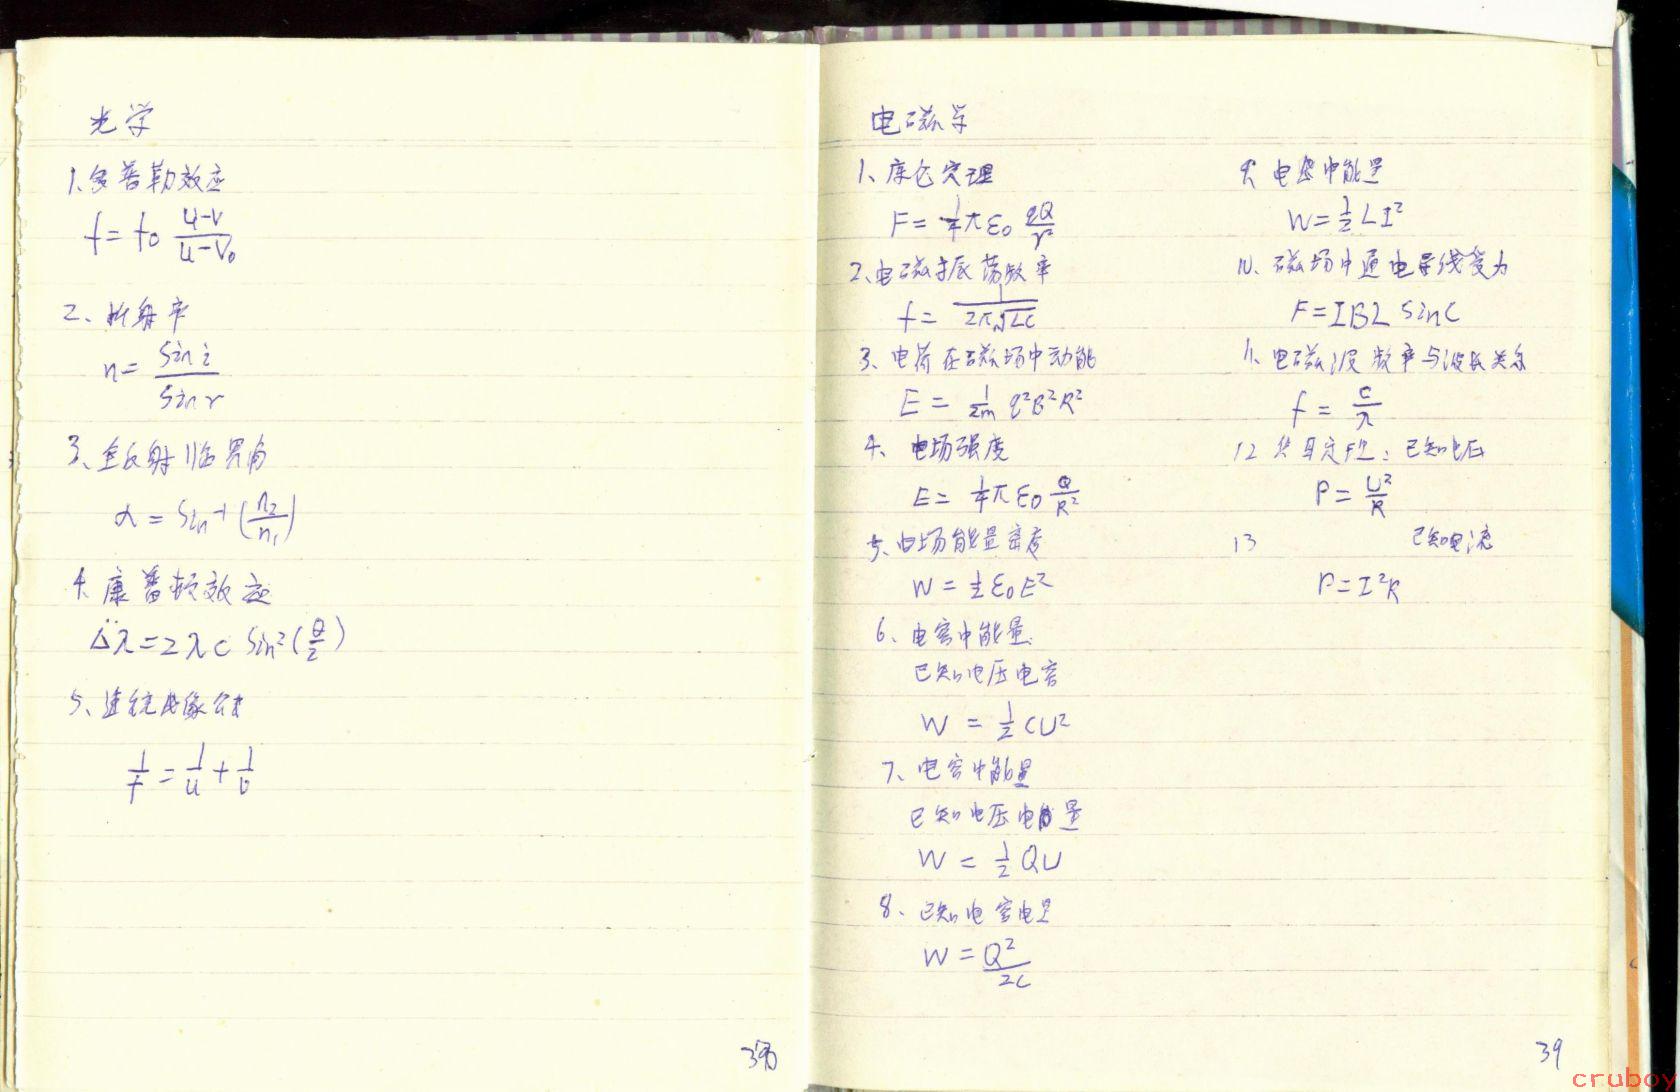 光学
1、多普勒效应
f = f0 (u-v)/(u-v₀)
2、折射率
n = sin i / sin r
3、全反射临界角
α = sin⁻¹(n₂/n₁)
4、康普顿效应
Δλ = 2λc sin²(θ/2)
5、透镜成像公式
1/f = 1/u + 1/v
电磁学
1、库仑定理
F = 1/4 π ε₀ qQ/r²
2、电磁振荡频率
f = 1/(2π√LC)
3、电荷在磁场中动能
E = 1/2m q²B²R²
4、电场强度
E = 1/4 π ε0 Q/R²
5、电场能量密度
W = 1/2 ε₀E²
6、电容中能量
已知电压电容
W = 1/2 CU²
7、电容中能量
已知电压电量
W = 1/2 QU
8、已知电容电量
W = Q²/2C
9、电感中能量
W = 1/2 LI²
10、磁场中通电导线受力
F = IBL sinC
11、电磁波频率与波长关系
f = c/λ
12 焦耳定律：已知电压
P = U²/R
13 已知电流
P = I²R
39
cruboy